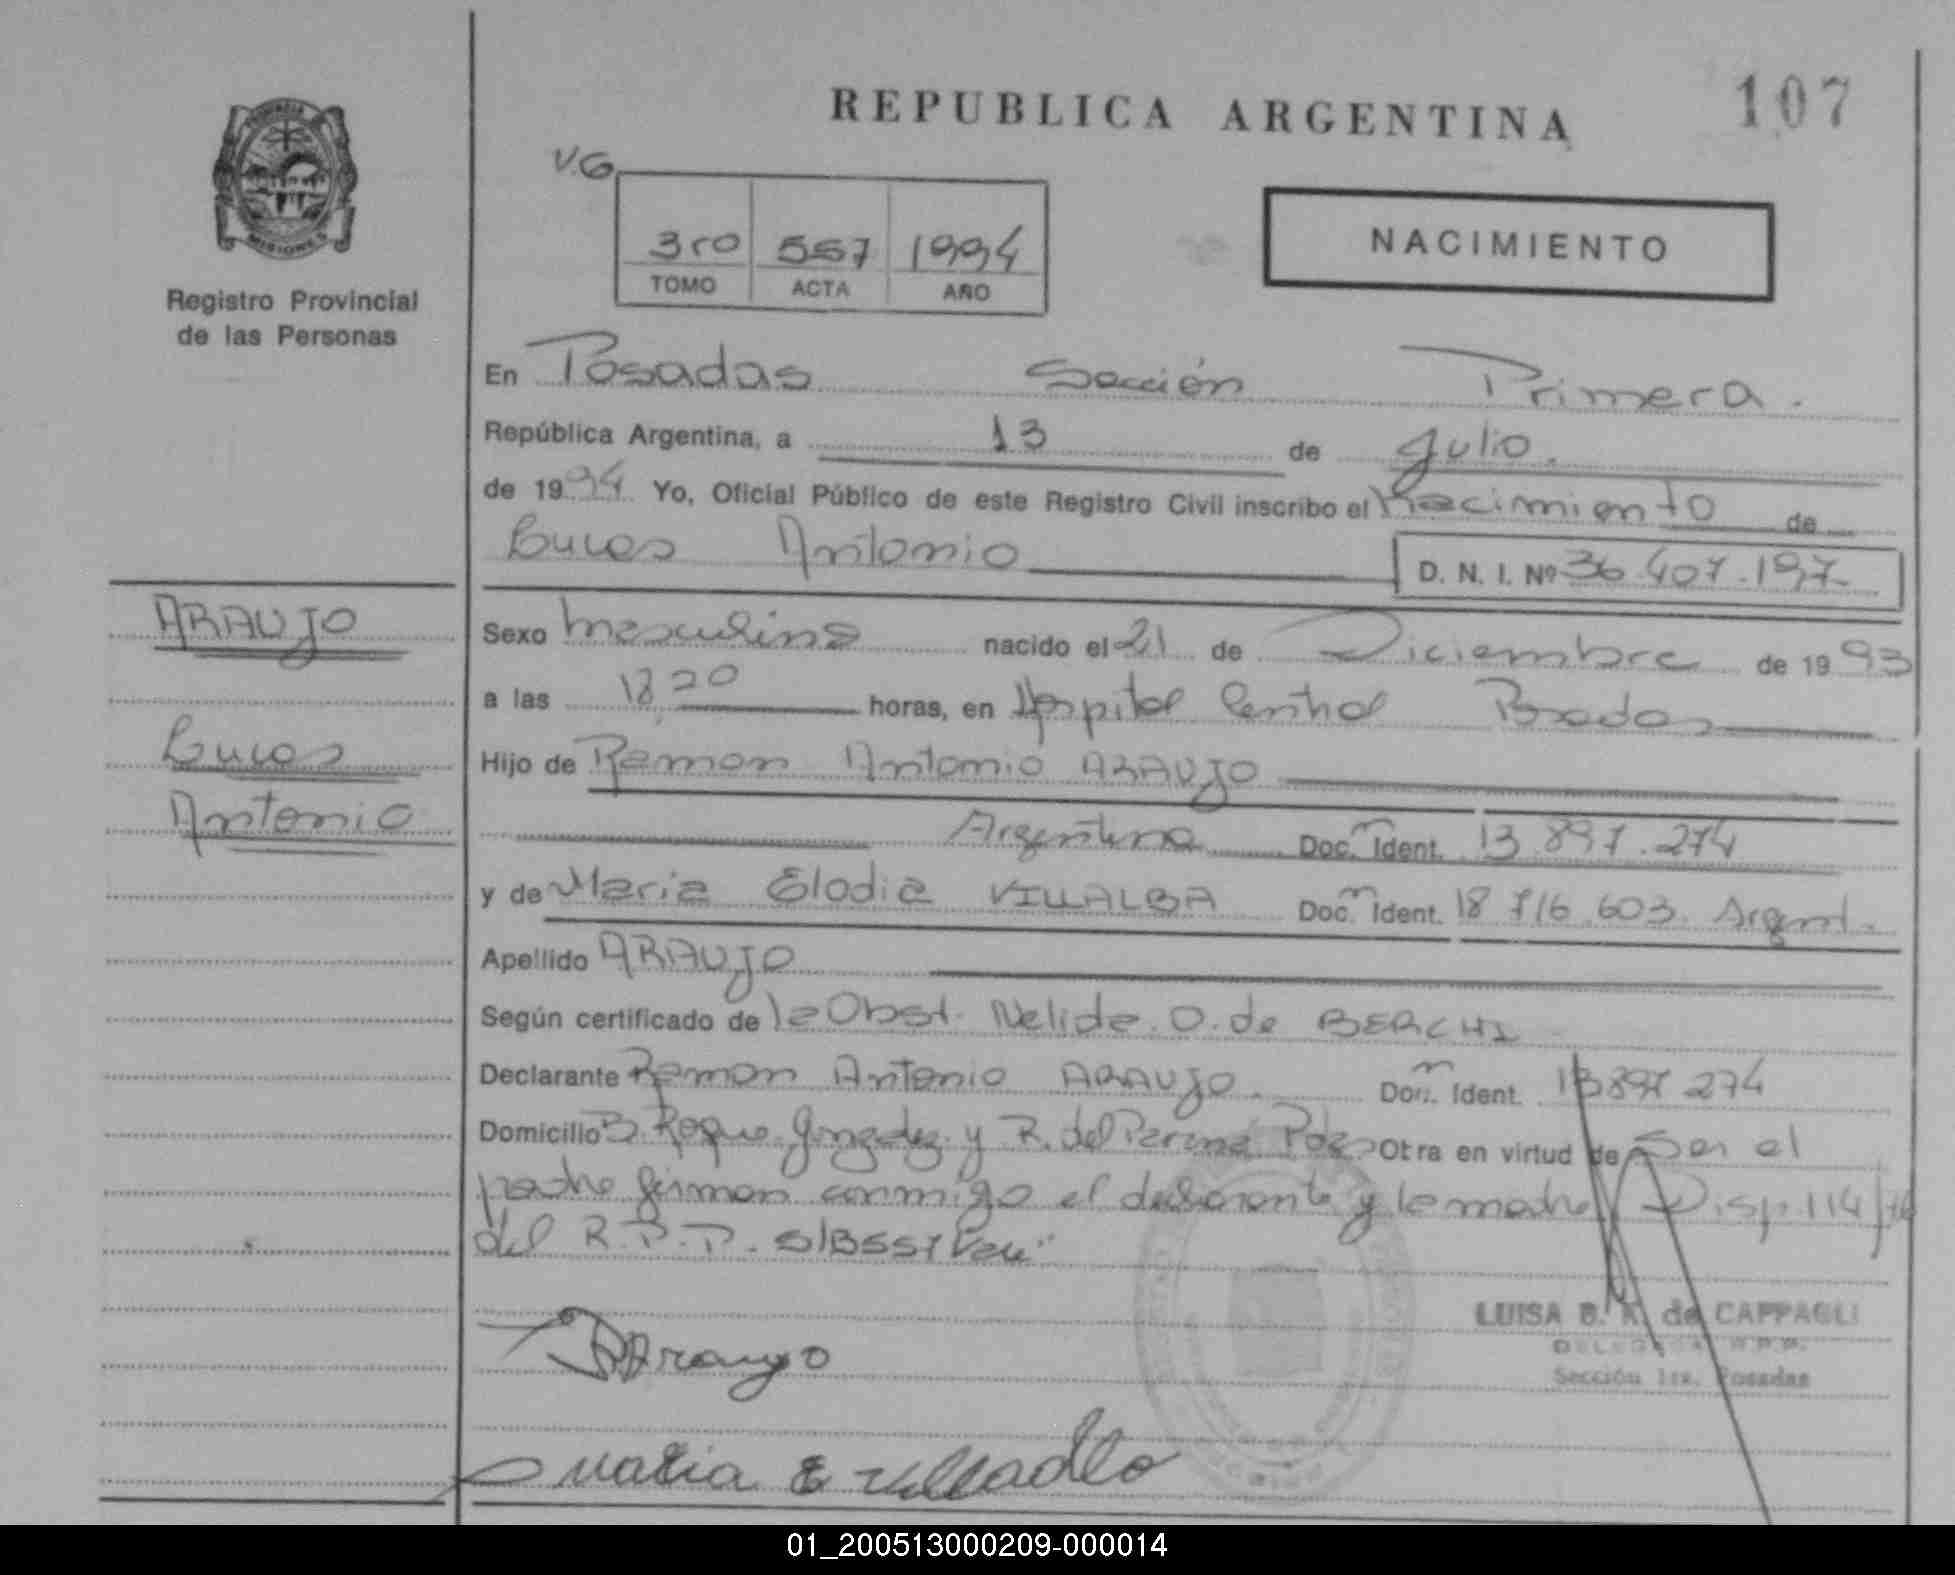 REPUBLICA ARGENTINA
107
PROVINCIA
MISIONES
Registro Provincial
de las Personas
V.G
3ro 557 1994
TOMO ACTA AÑO
NACIMIENTO
En Posadas Sección Primera.
República Argentina, a 13 de Julio.
de 1994 Yo, Oficial Público de este Registro Civil inscribo el Nacimiento de
Lucas Antonio D. N. I. Nº 36.407.197
ARAUJO
Lucas
Antonio
Sexo Masculino nacido el 21 de Diciembre de 1993
a las 18,20 horas, en Hospital Central Posadas
Hijo de Ramon Antonio ARAUJO
Argentina Doc. Ident. 13.897.274
y de Maria Elodia VILLALBA Doc. Ident. 18 716.603. Argent.
Apellido ARAUJO
Según certificado de la Obst. Nelida O. de BERCHI
Declarante Ramon Antonio ARAUJO. Doc. Ident. 13897 274
Domicilio B. Roque Gonzalez y R. del Parana Pdas Otra en virtud de Ser el
padre firman conmigo el declarante y la madre Disp. 114/
del R.P.P.
Araujo
LUISA B. K. de CAPPAGLI
DELEGADA R.P.P.
Sección 1ra. Posadas
Maria E
01_200513000209-000014